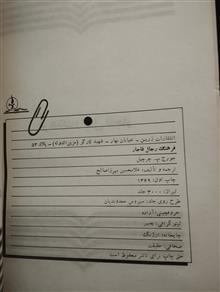 انتشارات زرین ـ خیابان بهار ـ شهید کارگر (عزیزالدوله) ـ پلاک ۵۳
فرهنگ رجال قاجار
جورج پ. چرچیل
ترجمه و تألیف: غلامحسین میرزاصالح
چاپ اول: ۱۳۶۹
تیراژ: ۳۰۰۰ جلد
طرح روی جلد: سیروس
حروفچینی: آزاده
لیتوگرافی:
چاپخانه: ارژنگ
صحافی: حقیقت
حق چاپ برای ناشر محفوظ است